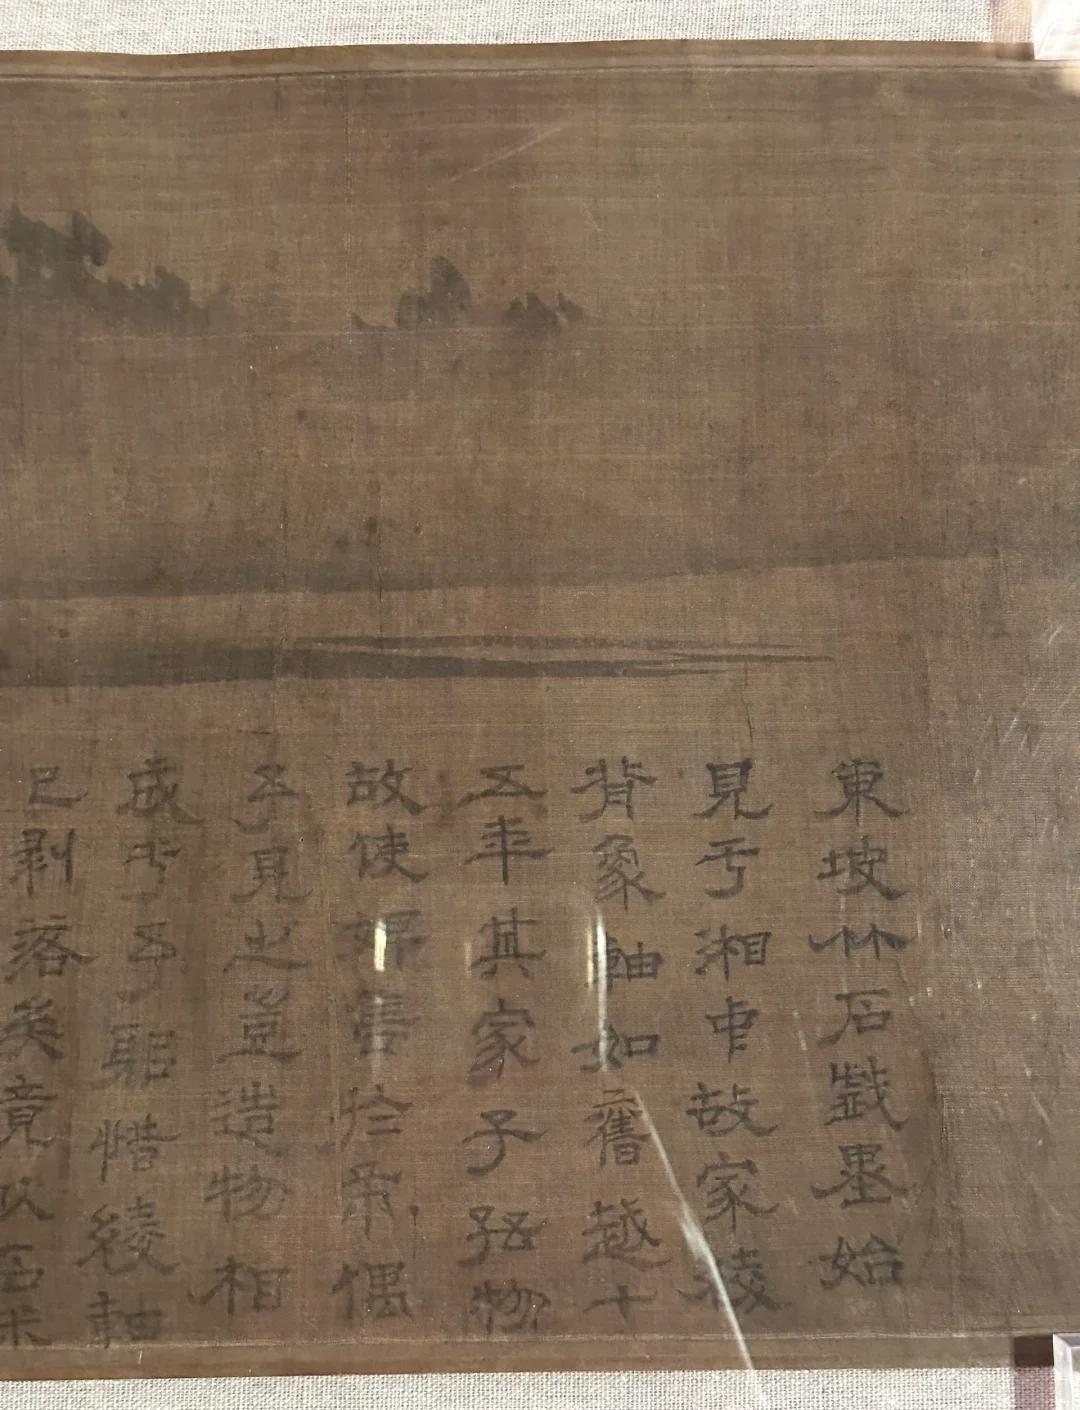 東坡竹石戲墨始
見于湘中故家綾
背象軸如舊越十
五年其家子孫物
故使婦於市偶
予見之豈造物相
成于予耶惜綾軸
已剝落矣竟以